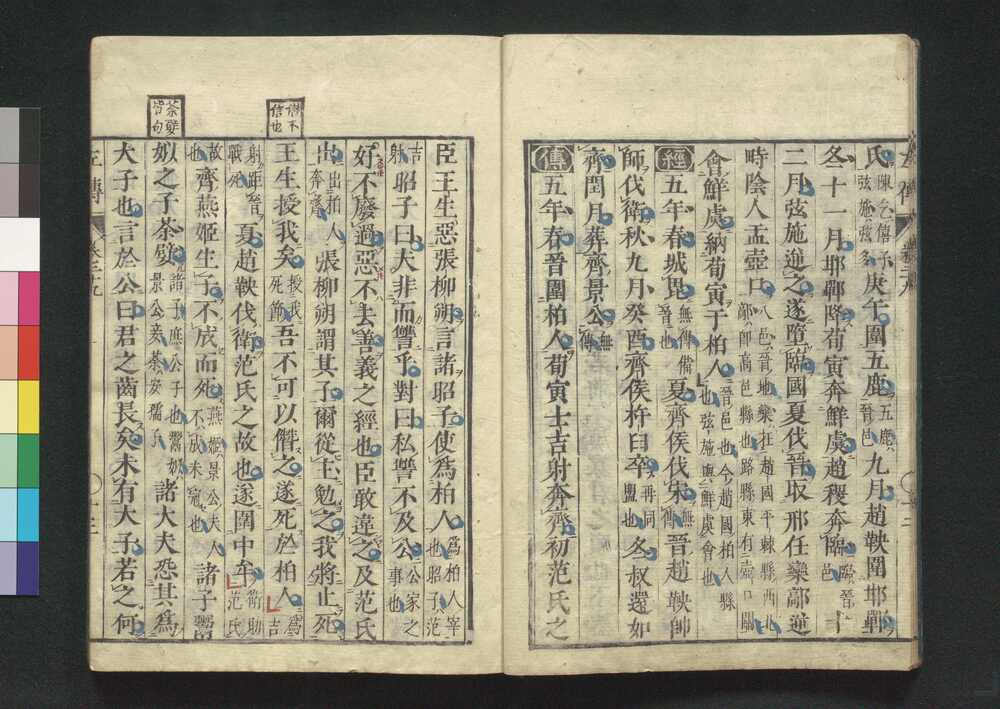 氏陳乞僖子弦施弦多庚午圍五鹿五鹿晉邑九月趙鞅圍邯鄲
冬十一月邯鄲降荀寅奔鮮虞趙稷奔臨臨晉邑十
二月弦施逆之遂墮臨國夏伐晉取邢任欒鄗逆
時陰人盂壺口八邑晉地欒在趙國平棘縣西北鄗即高邑縣也路縣東有壺口關
會鮮虞納荀寅于柏人晉邑也今趙國柏人縣也弦施與鮮虞會也
經五年春城毘無傳備晉也夏齊侯伐宋無傳晉趙鞅帥
師伐衛秋九月癸酉齊侯杵臼卒再同盟也冬叔還如
齊閏月葬齊景公無傳
傳五年春晉圍柏人荀寅士吉射奔齊初范氏之
臣王生惡張柳朔言諸昭子使爲柏人爲柏人宰也昭子范
吉射昭子曰夫非而讐乎對曰私讐不及公公家之事也
好不廢過惡不去善義之經也臣敢違之及范氏
出出柏人奔齊張柳朔謂其子爾從主勉之我將止死
僭不信也
王生授我矣授我死節吾不可以僭之遂死於柏人爲吉
射距晉戰死夏趙鞅伐衛范氏之故也遂圍中牟衛助范氏
故也齊燕姬生子不成而死燕姬景公夫人不成未冠也諸子鬻
荼嬖皆句
姒之子荼嬖諸子庶公子也鬻姒景公妾荼安孺子諸大夫恐其爲
大子也言於公曰君之齒長矣未有大子若之何
左傳
卷二十九